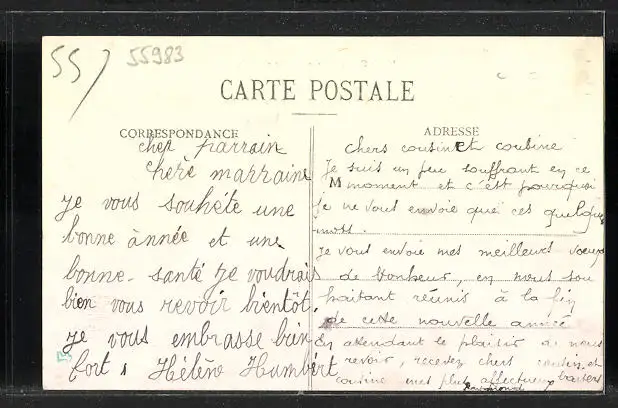 55)
55983
CARTE POSTALE
CORRESPONDANCE
cher parrain
chère marraine
Je vous souhète une
bonne année et une
bonne santé je voudrais
bien vous revoir bientôt.
je vous embrasse bien
fort, Hélène Humbert
ADRESSE
chers cousin et cousine
Je suis un peu souffrant en ce
M moment et c'est pourquoi
je ne vous envoie que ces quelques
mots.
je vous envoie mes meilleurs voeux
de bonheur, en nous sou
haitant réunis à la fin
de cette nouvelle année
En attendant le plaisir de nous
revoir, recevez chers cousin et
cousine mes plus affectueux baisers
Raymond